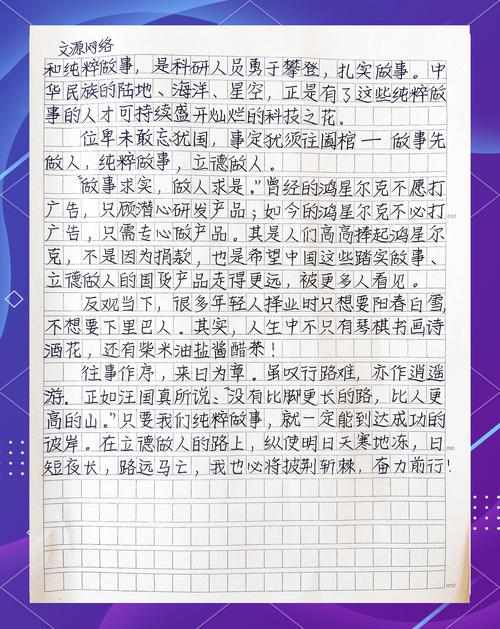 文源网络
和纯粹做事，是科研人员勇于攀登，扎实做事。中
华民族的陆地、海洋、星空，正是有了这些纯粹做
事的人才可持续盛开灿烂的科技之花。
位卑未敢忘犹国，事定犹须往阖棺一 做事先
做人，纯粹做事，立德做人。
“做事求实，做人求是。”曾经的鸿星尔克不愿打
广告，只顾潜心研发产品；如今的鸿星尔克不必打
广告，只需专心做产品。其是人们高高捧起鸿星尔
克，不是因为捐款，也是希望中国这些踏实做事、
立德做人的国货产品走得更远，被更多人看见。
反观当下，很多年轻人择业时只想要阳春白雪，
不想要下里巴人。其实，人生中不只有琴棋书画诗
酒花，还有柴米油盐酱醋茶！
往事作序，来日为尊。虽叹行路难，亦作逍遥
游。正如汪国真所说、“没有比脚更长的路，比人更
高的山。”只要我们纯粹做事，就一定能到达成功的
彼岸。在立德做人的路上，纵使明日天寒地冻，日
短夜长，路远马亡，我也必将披荆斩棘，奋力前行！